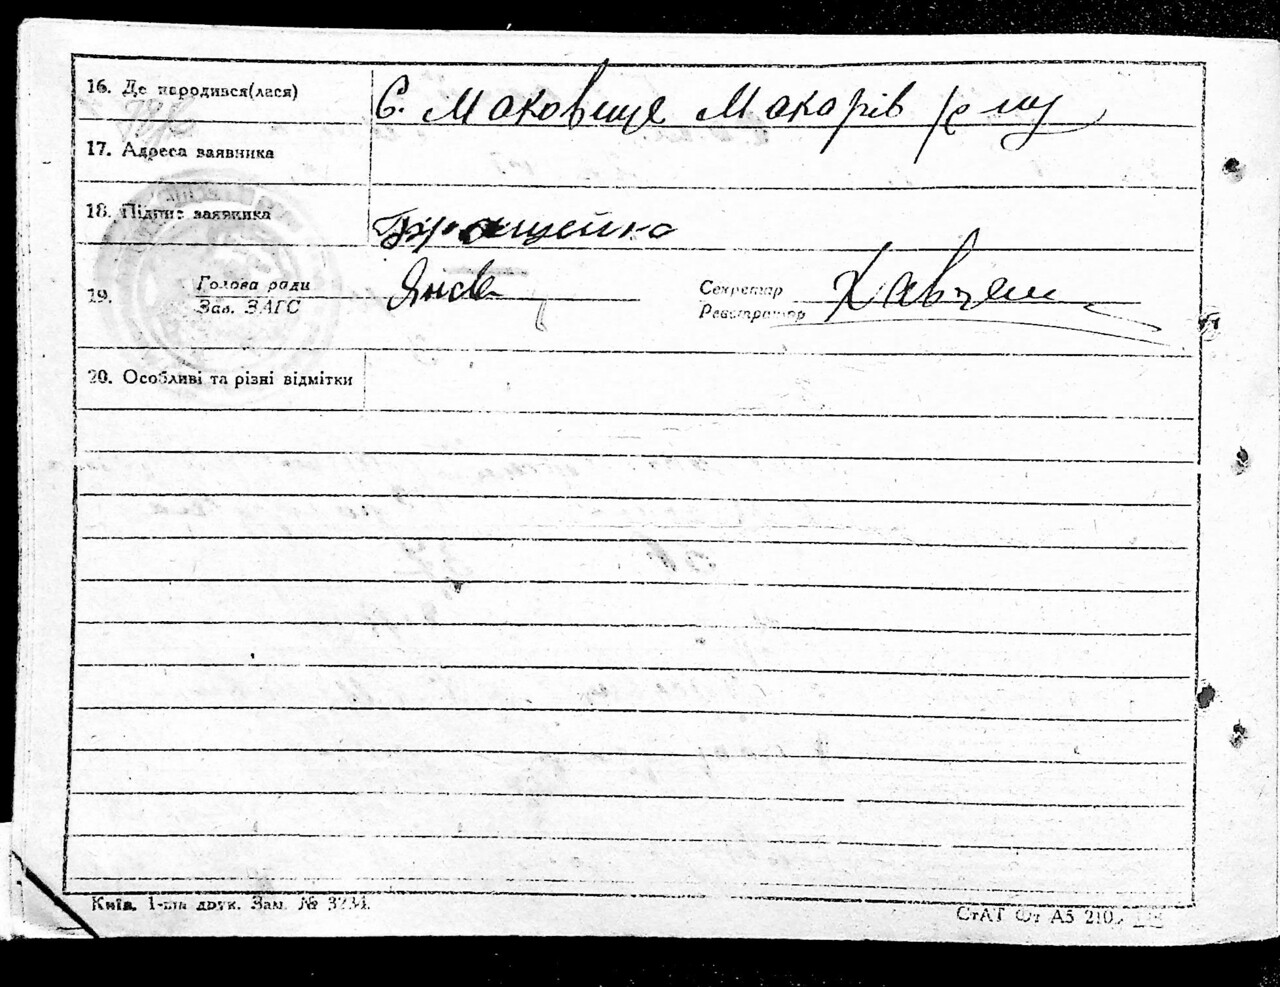 16. Де народився(лася) С. Маковище Макарів р-ну
17. Адреса заявника
18. Підпис заявника
19. Голова ради Секретар
Зав. ЗАГС Реєстратор
20. Особливі та різні відмітки
Київ. 1-ша друк. Зам. № 3234.
СтАТ Фт А5 210